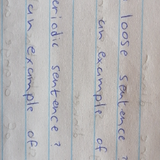 loose sentence ?
an example of
eriodic sentence ?
an example of